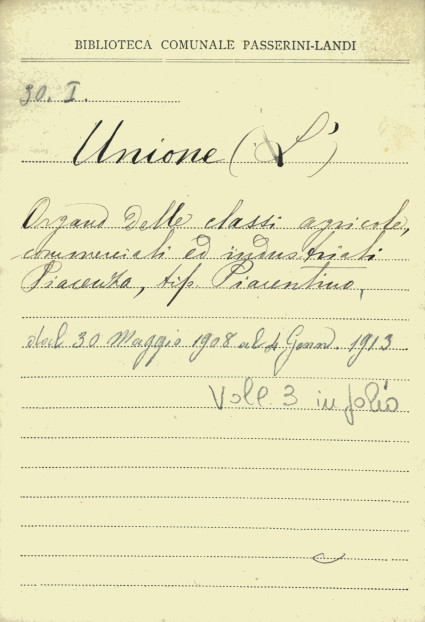 BIBLIOTECA COMUNALE PASSERINI-LANDI
30. I.
Unione (L')
Organo delle classi agricole,
commerciali ed industriali
Piacenza, tip. Piacentino,
dal 30 Maggio 1908 al 4 Genn. 1913
Voll. 3 in folio